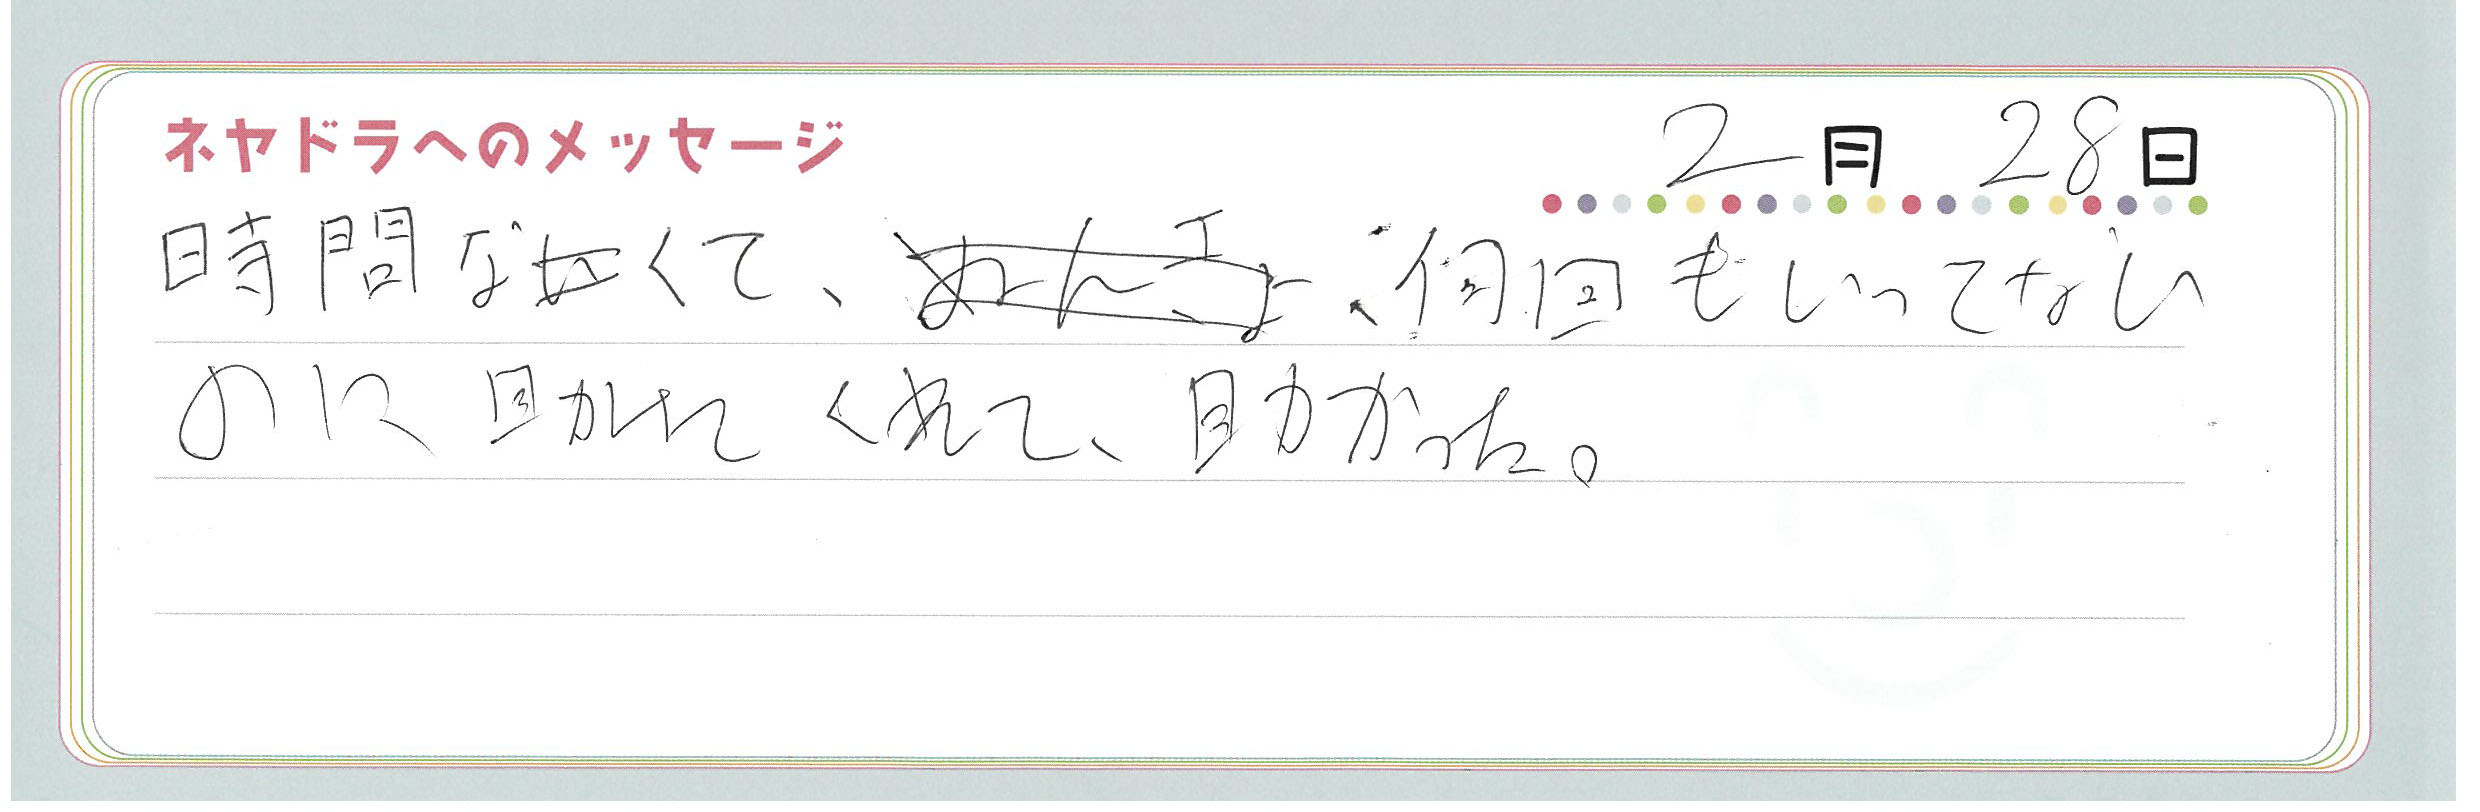 ネヤドラへのメッセージ 2月 28日
時間なくて、何回もいってない
のに くれて、助かった。